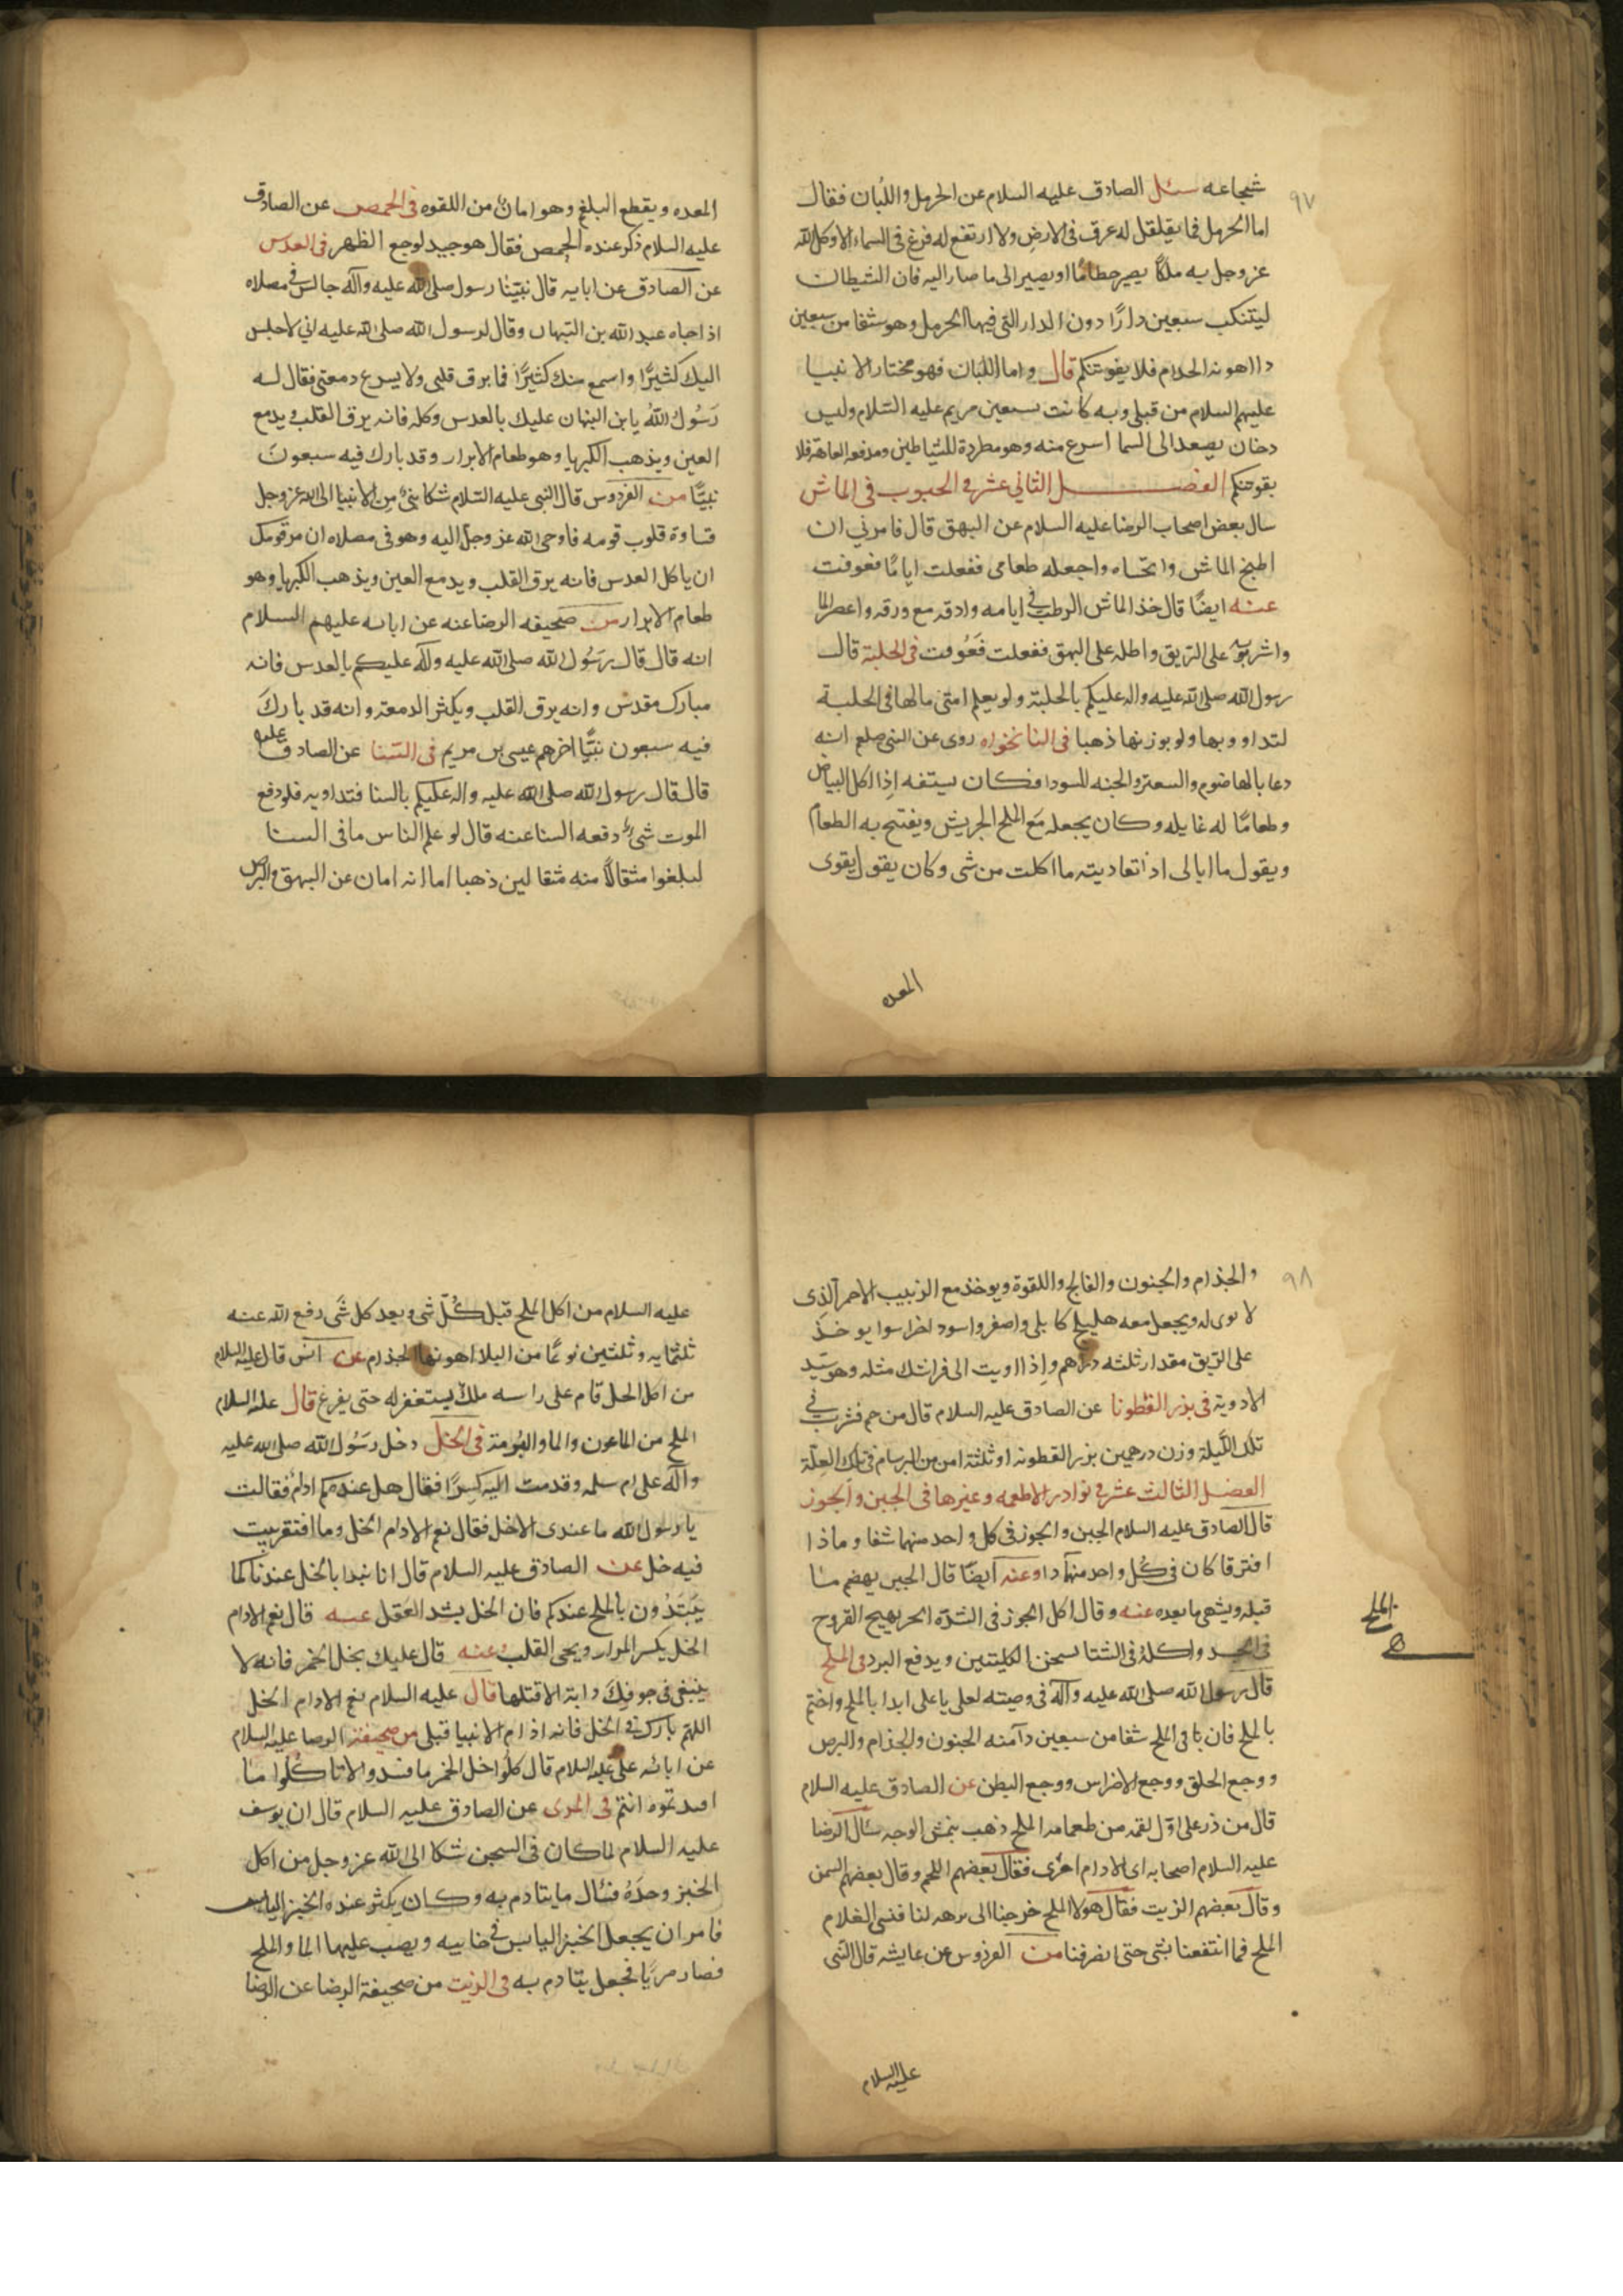 ٩٧
شجاعه سئل الصادق عليه السلام عن الحرمل واللبان فقال
اما الحرمل فما يقلقل له عرق فى الارض ولا ارتفع له فرع فى السماء الا وكل الله
عز وجل به ملكًا يصير حطامًا او يصير الى ما صار اليه فان الشيطان
ليتنكب سبعين دارًا دون الدار التى فيها الحرمل وهو شفا من سبعين
دا اهونه الجدام فلا يفوتنكم قال واما اللبان فهو مختار الانبيا
عليهم السلام من قبلى وبه كانت تستعين مريم عليه السلام وليس
دخان يصعد الى السما اسرع منه وهو مطردة للشياطين ومدفعه للعاهة فلا
يفوتنكم الفصل الثانى عشر فى الحبوب فى الماش
سال بعض اصحاب الرضا عليه السلام عن البهق قال فامرنى ان
اطبخ الماش واتحساه واجعله طعامى ففعلت ايامًا فعوفت
عنه ايضًا قال خذ الماش الرطب فى ايامه وادقه مع ورقه واعصر الما
واشربه على الريق واطله على البهق ففعلت فعوفت فى الحلبة قال
رسول الله صلى الله عليه واله عليكم بالحلبة ولو يعلم امتى ما لها فى الحلبة
لتداووا بها ولو بوزنها ذهبا فى النانخواه روى عن النبى صلعم انه
دعا بالهاضوم والسعتر والحبه السودا فكان يستفه اذا اكل البياض
وطعامًا له غايله وكان يجعله مع الملح الجريش ويفتح به الطعام
ويقول ما ابالى اذا تعاديته ما اكلت من شى وكان يقول يقوى
المعده
المعده ويقطع البلغم وهو امان من اللقوه فى الحمص عن الصادق
عليه السلام ذكر عنده الحمص فقال هو جيد لوجع الظهر فى العدس
عن الصادق عن ابايه قال بينا رسول صلى الله عليه وآله جالس فى مصلاه
اذا جاه عبد الله بن التيهان وقال لرسول الله صلى الله عليه انى لاجلس
اليك كثيرًا واسمع منك كثيرًا فما يرق قلبى ولا يسرع دمعتى فقال له
رسول الله يا بن التيهان عليك بالعدس وكله فانه يرق القلب ويدمع
العين ويذهب الكبريا وهو طعام الابرار وقد بارك فيه سبعون
نبيًا من الفردوس قال النبى عليه السلام شكا نبى من الانبيا الى الله عز وجل
قساوة قلوب قومه فاوحى الله عز وجل اليه وهو فى مصلاه ان مر قومك
ان ياكل العدس فانه يرق القلب ويدمع العين ويذهب الكبريا وهو
طعام الابرار من صحيفه الرضا عنه عن ابائه عليهم السلام
انه قال قال رسول الله صلى الله عليه وآله عليكم بالعدس فانه
مبارك مقدس وانه يرق القلب ويكثر الدمعة وانه قد بارك
فيه سبعون نبيًا اخرهم عيسى بن مريم فى السنا عن الصادق عليه
قال قال رسول الله صلى الله عليه واله عليكم بالسنا فتداويه فلو دفع
الموت شى دفعه السنا عنه قال لو علم الناس ما فى السنا
لبلغوا مثقالًا منه مثقالين ذهبا اما انه امان عن البهق والبرص
٩٨
والجذام والجنون والفالج واللقوة ويوخذ مع الزبيب الاحمر الذى
لا نوى له ويجعل معه هليلج كابلى واصفر واسود اخرا سوا يوخذ
على الريق مقدار ثلثه دراهم واذا اويت الى فراشك مثله وهو سيد
الادوية فى بزر القطونا عن الصادق عليه السلام قال من حم فشرب فى
تلك الليلة وزن درهمين بزر القطونه او ثلثة امن من البرسام فى تلك العلة
الفصل الثالث عشر فى نوادر الاطعمه وغيرها فى الجبن والجوز
قال الصادق عليه السلام الجبن والجوز فى كل واحد منهما شفا وماذا
افترقا كان فى كل واحد منهما دا وعنه ايضًا قال الجبن يهضم ما
قبله ويشهى ما بعده عنه وقال اكل الجوز فى الشدة الحر يهيج القروح
فى الجسد واكله فى الشتا يسخن الكليتين ويدفع البرد فى الملح
قال رسول الله صلى الله عليه وآله فى وصيته لعلى يا على ابدا بالملح واختم
بالملح فان فى الملح شفا من سبعين دآ منه الجنون والجذام والبرص
ووجع الحلق ووجع الاضراس ووجع البطن عن الصادق عليه السلام
قال من ذر على اول لقمه من طعامه الملح ذهب بنمش الوجه سئال الرضا
عليه السلام اصحابه اى الادام امرى فقال بعضهم اللحم وقال بعضهم السمن
وقال بعضهم الزيت فقال هو لا الملح خرجنا الى نزهه لنا فنسى الغلام
الملح فما انتفعنا بشى حتى انصرفنا من الفردوس عن عايشه قال النبى
الملح
عليه السلام
عليه السلام من اكل الملح قبل كل شى وبعد كل شى دفع الله عنه
ثلثمايه وثلثين نوعًا من البلا اهونها الجذام عن انس قال عليه السلام
من اكل الخل قام على راسه ملك يستغفر له حتى يفرغ قال عليه السلام
الملح من الماعون والما والبرمة فى الخل دخل رسول الله صلى الله عليه
وآله على ام سلمه وقدمت اليه كسرًا فقال هل عندكم ادام فقالت
يا رسول الله ما عندى الا خل فقال نعم الادام الخل وما افتقر بيت
فيه خل عن الصادق عليه السلام قال انا نبدا بالخل عندنا كما
يبتدون بالملح عندكم فان الخل يشد العقل عنه قال نعم الادام
الخل يكسر المرار ويحى القلب وعنه قال عليك بخل الخمر فانه لا
يبقى فى جوفك دابة الا قتلها قال عليه السلام نعم الادام الخل
اللهم بارك فى الخل فانه ادام الانبيا قبلى من صحيفة الرضا عليه السلام
عن ابائه على عليه السلام قال كلوا خل الخمر ما فسد ولا تاكلوا ما
افسدتموه انتم فى المرى عن الصادق عليه السلام قال ان يوسف
عليه السلام لما كان فى السجن شكا الى الله عز وجل من اكل
الخبز وحده فسئال ما يتادم به وكان يكثر عنده الخبز اليابس
فامر ان يجعل الخبز اليابس فى خابيه ويصب عليها الما والملح
فصار مريًا فجعل يتادم به فى الزيت من صحيفة الرضا عن الرضا